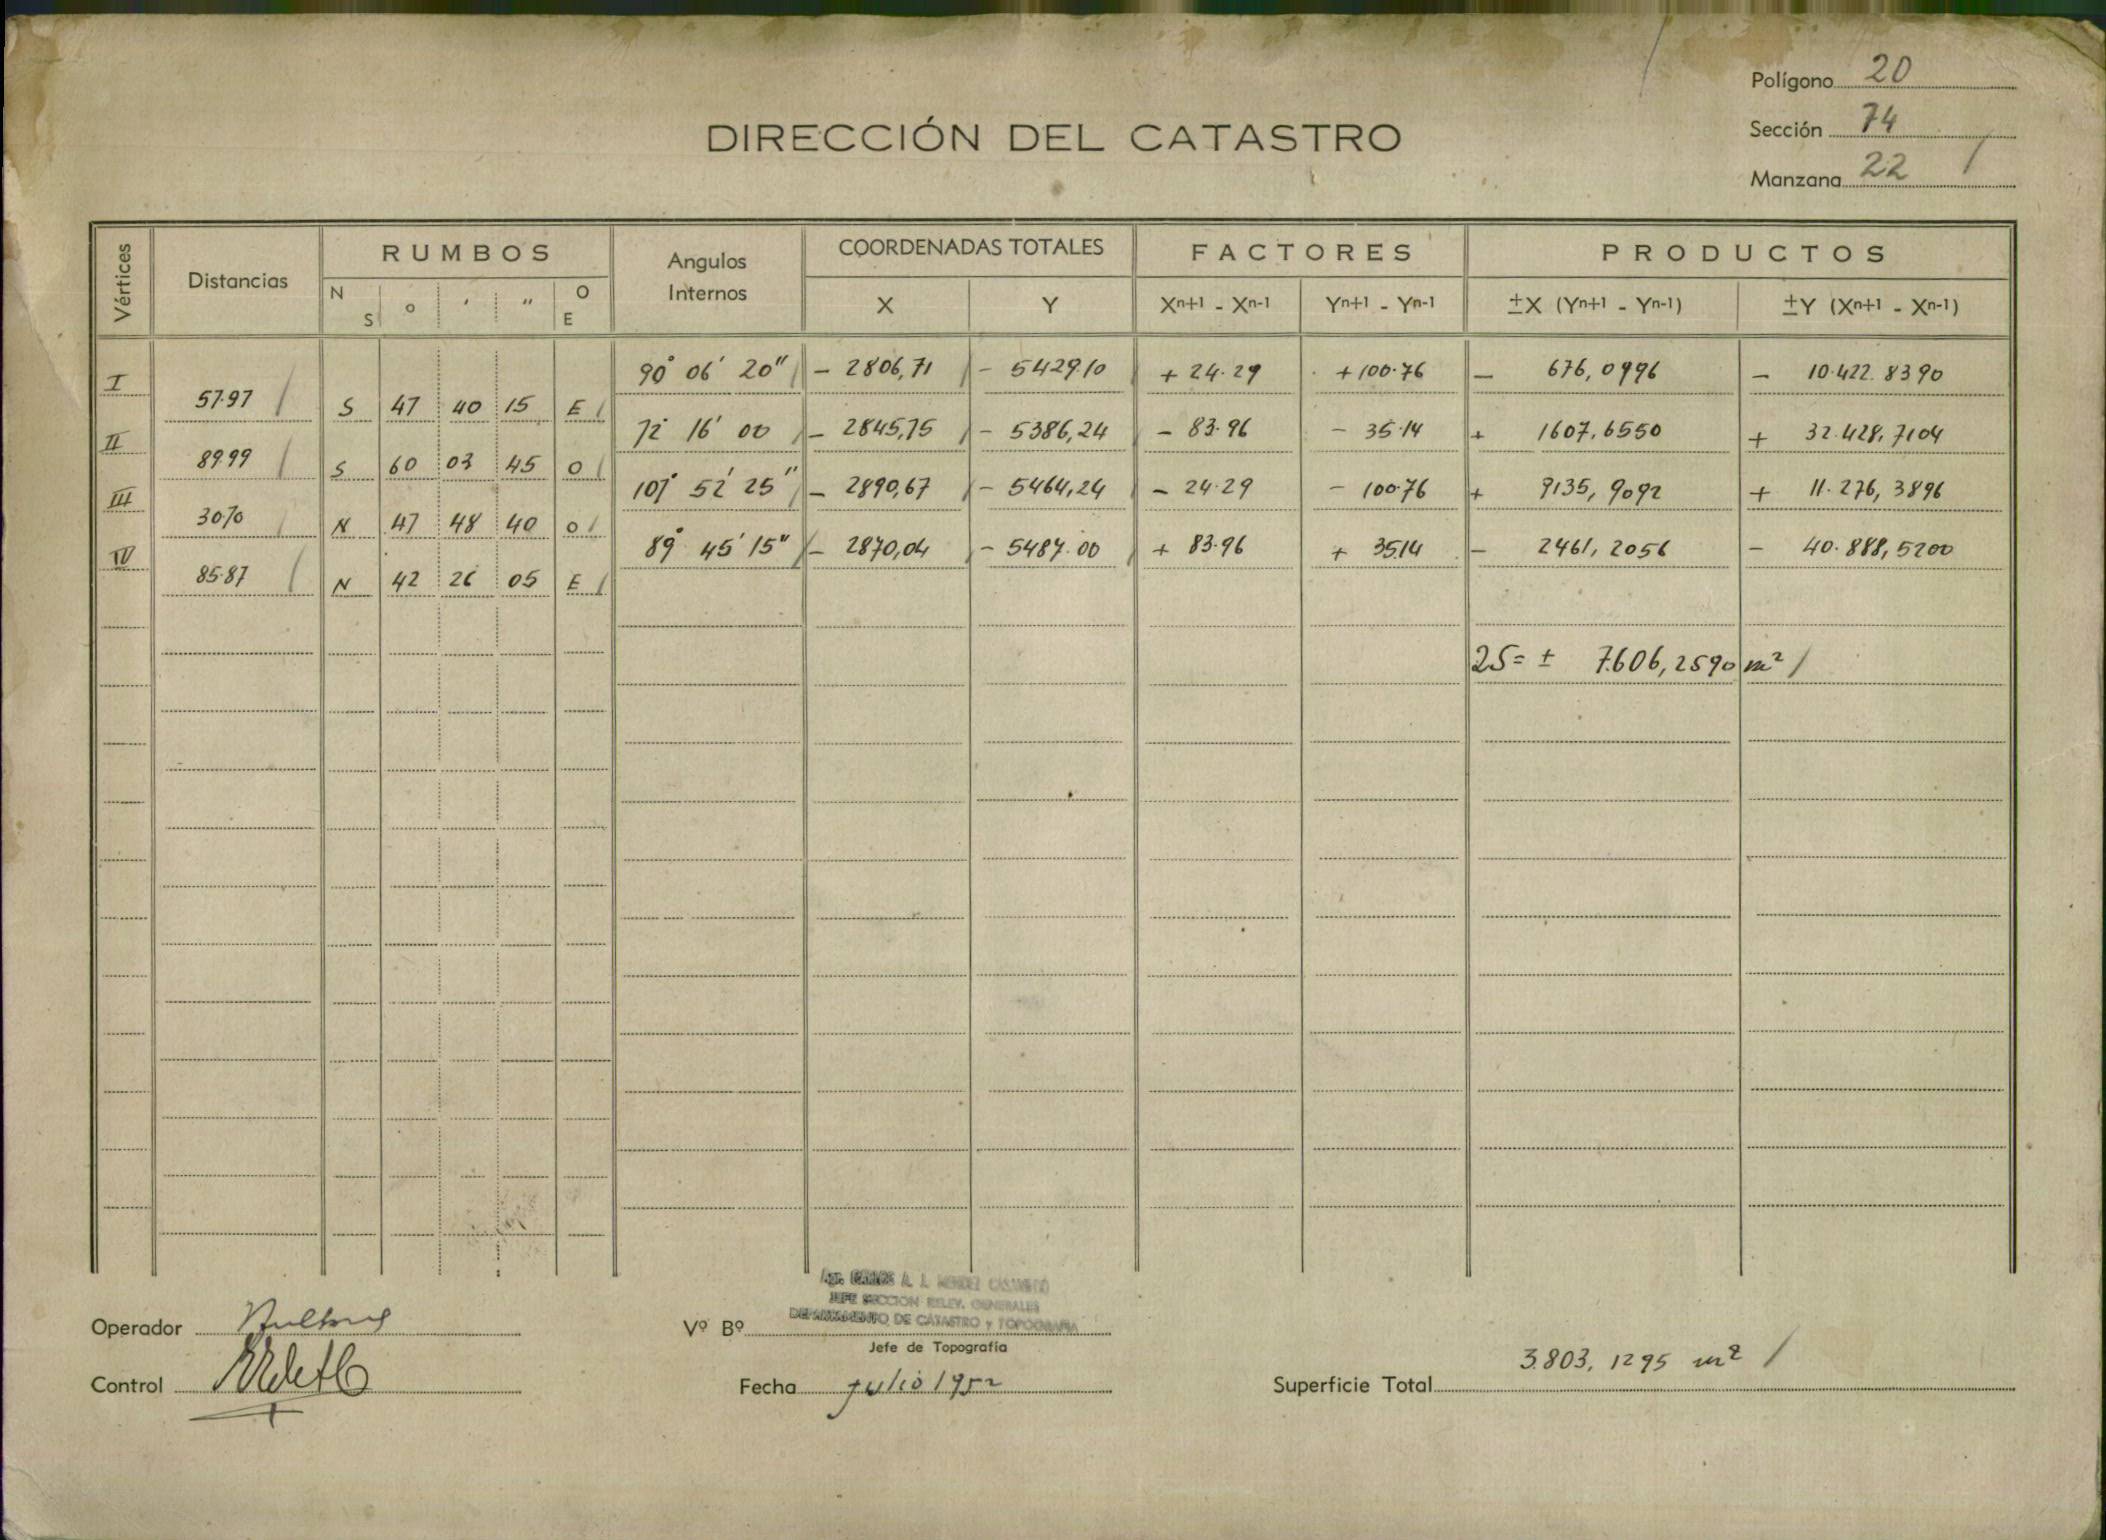 Polígono 20
Sección 74
Manzana 22
DIRECCIÓN DEL CATASTRO
Vértices Distancias RUMBOS Angulos Internos COORDENADAS TOTALES FACTORES PRODUCTOS
N S o ' " O E X Y Xn+1 - Xn-1 Yn+1 - Yn-1 ±X (Yn+1 - Yn-1) ±Y (Xn+1 - Xn-1)
I 90° 06' 20" - 2806,71 - 5429,10 + 24.29 + 100.76 - 676,0996 - 10.422.8390
57.97 S 47 40 15 E
II 72° 16' 00 - 2845,75 - 5386,24 - 83.96 - 35.14 + 1607,6550 + 32.428,7104
89.99 S 60 03 45 O
III 107° 52' 25" - 2890,67 - 5464,24 - 24.29 - 100.76 + 9135,9092 + 11.276,3896
30.70 N 47 48 40 O
IV 89° 45' 15" - 2870,04 - 5487.00 + 83.96 + 35.14 - 2461,2056 - 40.888,5200
85.87 N 42 26 05 E
2S = ± 7.606,2590 m²
A. J. MENDEZ
JEFE SECCION RELEV. GENERALES
DEPARTAMENTO DE CATASTRO y TOPOGRAFIA
Operador
Vº Bº
Jefe de Topografía
Control
Fecha julio 1952
Superficie Total 3.803,1295 m²